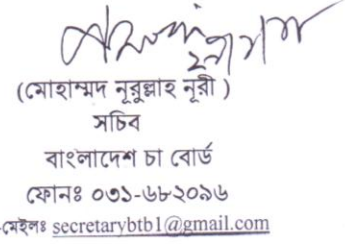 (মোহাম্মদ নূরুল্লাহ নূরী )
সচিব
বাংলাদেশ চা বোর্ড
ফোনঃ ০৩১-৬৮২০৯৬
মেইলঃ secretarybtb1@gmail.com